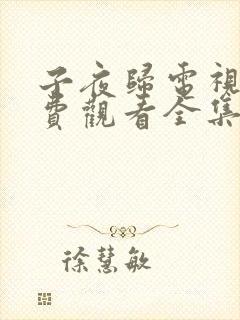 子夜歸電視
費觀看全集
徐慧敏